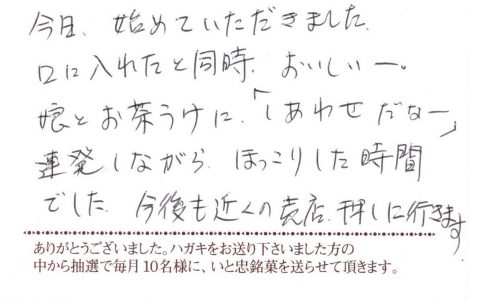 今日、始めていただきました.
口に入れたと同時、おいしぃー。
娘とお茶うけに、「しあわせだなー」
連発しながら、ほっこりした時間
でした. 今後も近くの売店、押しに行きます
ありがとうございました。ハガキをお送り下さいました方の
中から抽選で毎月10名様に、いと忠銘菓を送らせて頂きます。